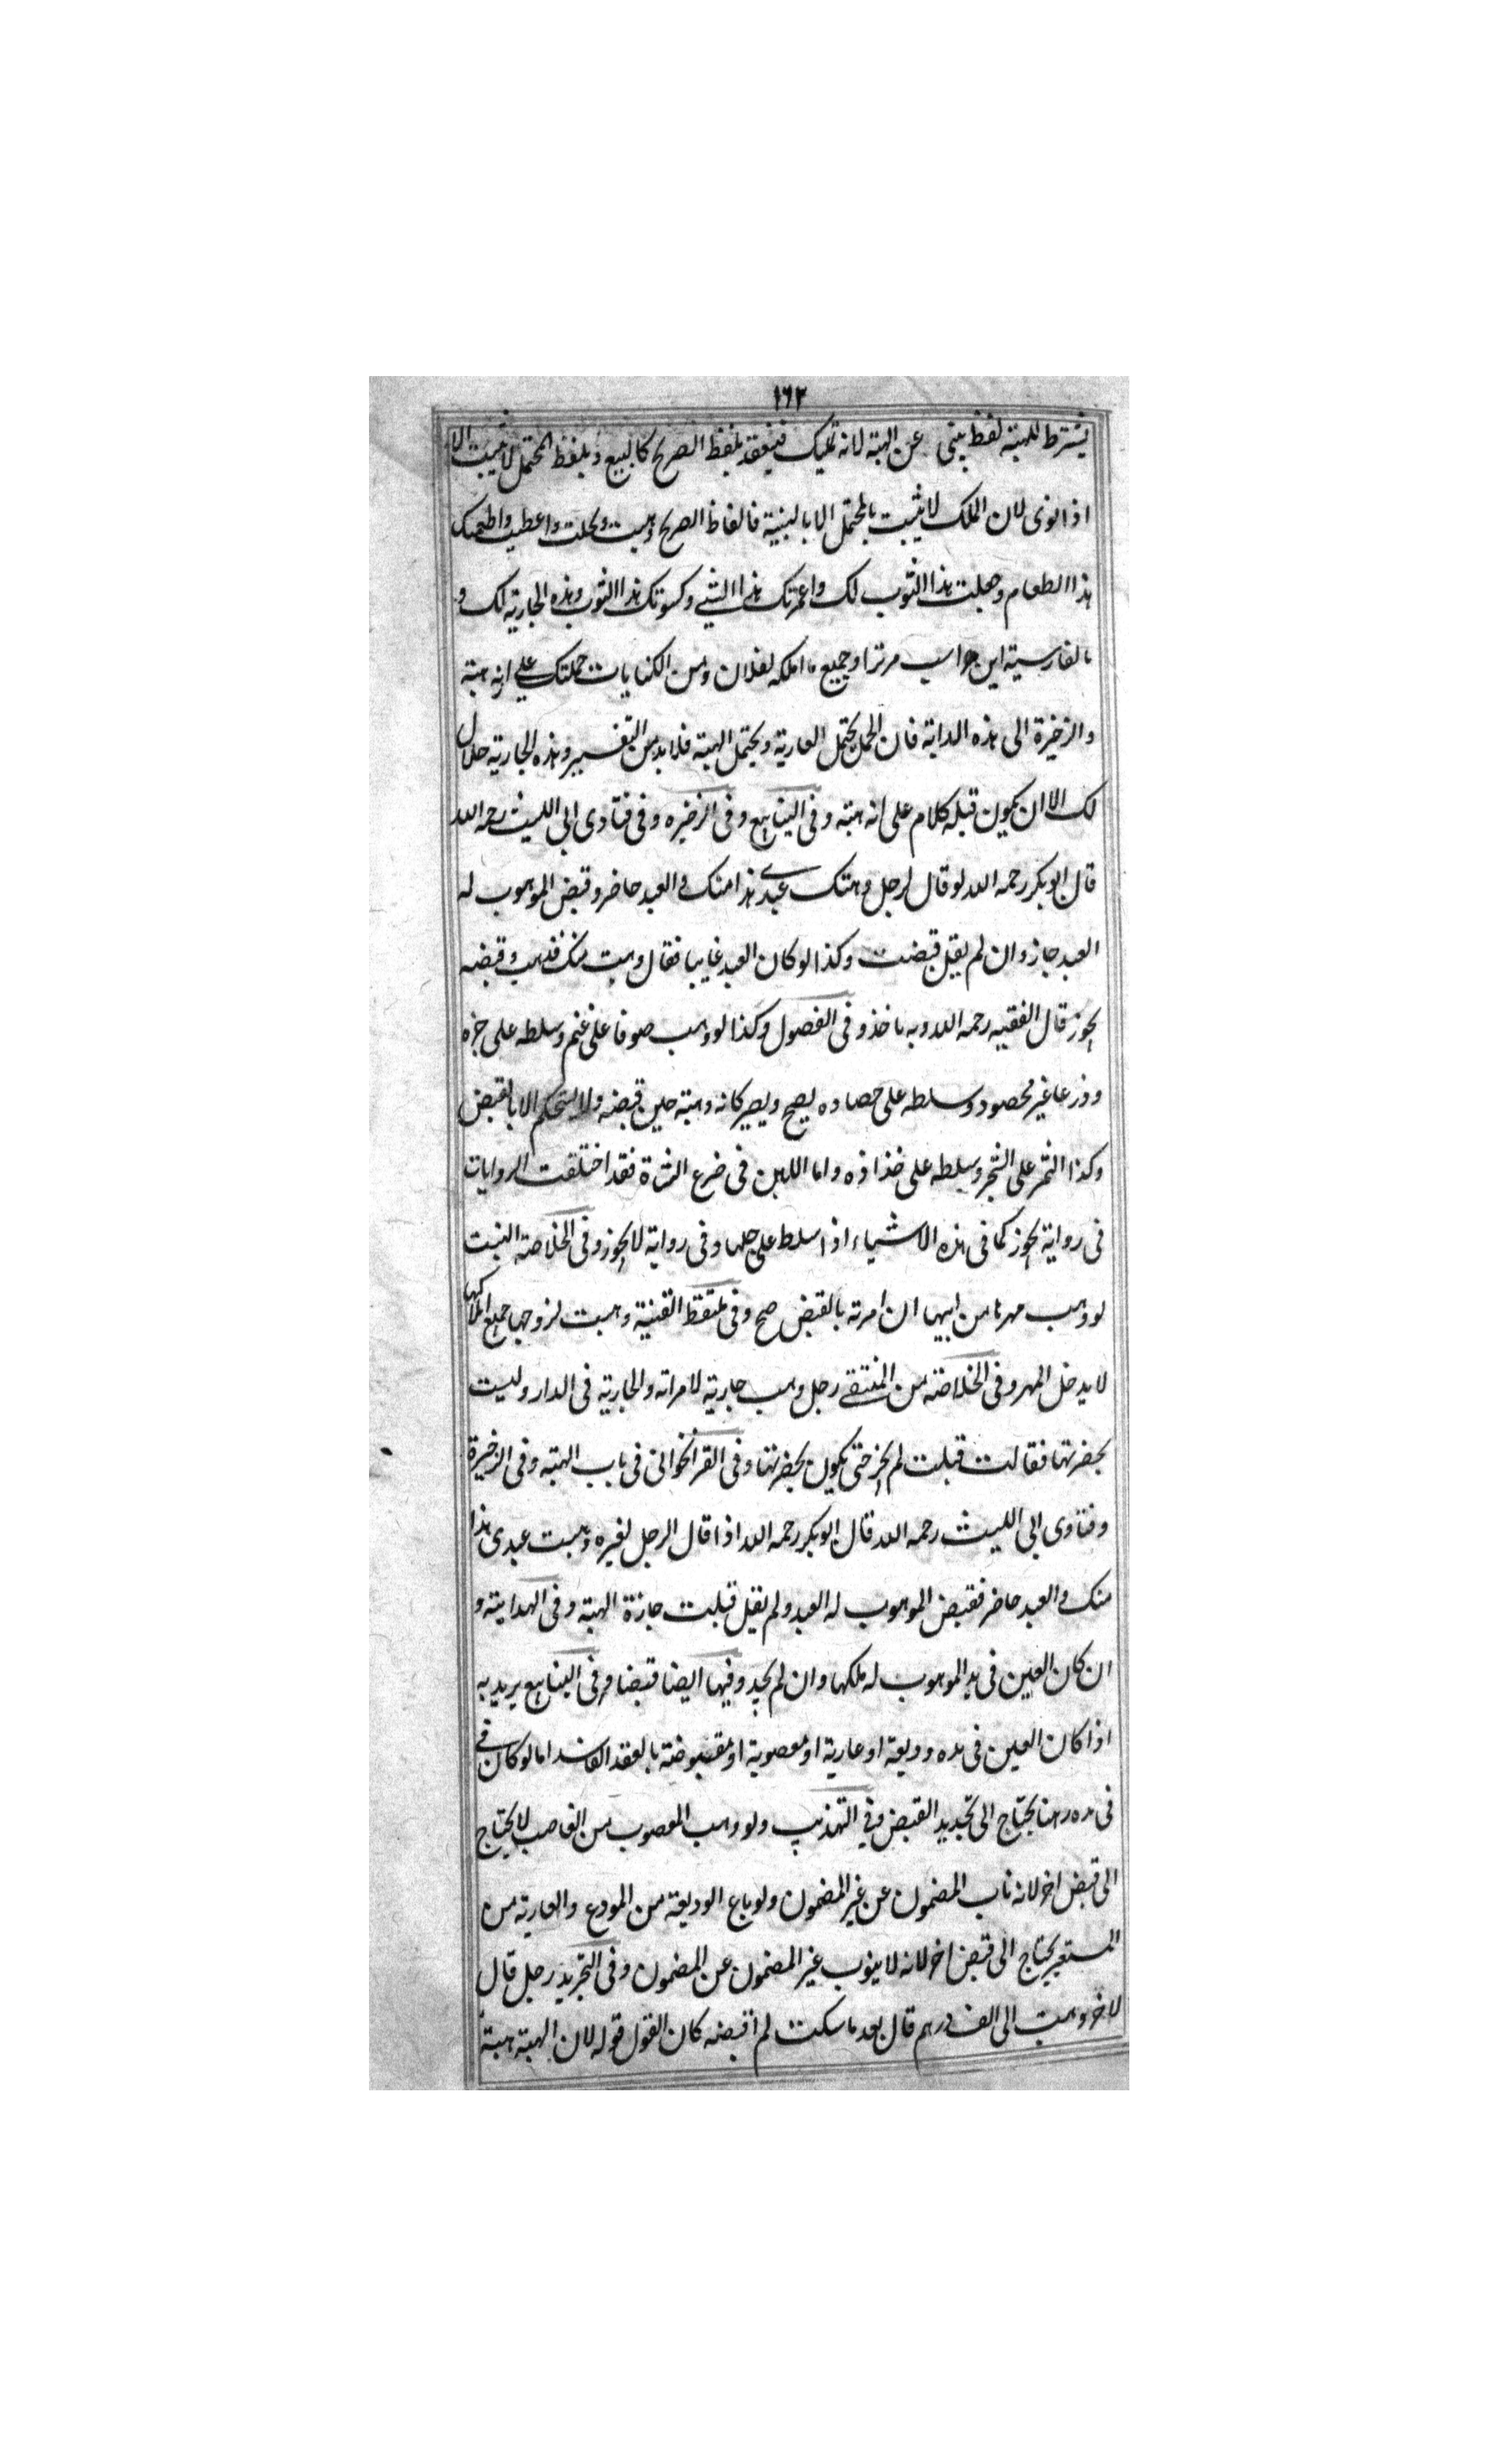 ١٦٢
يشترط للهبة لفظ ينبى عن الهبة لانه تمليك فينعقد بلفظ الصريح كالبيع وبلفظ المحتمل لا يثبت الا
اذا نوى لان الملك لا يثبت بالمحتمل الا بالنية فالفاظ الصريح وهبت ونحلت واعطيت واطعمتك
هذا الطعام وجعلت هذا الثوب لك واعمرتك هذا الشئ وكسوتك هذا الثوب وهذه الجارية لك و
بالفارسية اين اسب مر ترا وجميع ما املكه لفلان ومن الكنايات حملتك على انه هبة
والزخيرة الى هذه الدابة فان الحمل يحتمل العارية ويحتمل الهبة فلا بد من التفسير وهذه الجارية حلال
لك الا ان يكون قبله كلام على انه هبة وفى الينابيع وفى الزخيره وفى فتاوى ابى الليث رحمه الله
قال ابو بكر رحمه الله لو قال لرجل وهبتك عبدى هذا منك والعبد حاضر وقبض الموهوب له
العبد جاز وان لم يقل قبضت وكذا لو كان العبد غايبا فقال وهبت منك فذهب وقبضه
يجوز قال الفقيه رحمه الله وبه ناخذ وفى الفصول وكذا لو وهب صوفا على غنم وسلطه على جزه
وزرعا غير محصود وسلطه على حصاده يصح ويصير كانه وهبته حين قبضه ولا يستحكم الا بالقبض
وكذا الثمر على الشجر وسلطه على خذاذه واما اللبن فى ضرع الشاة فقد اختلفت الروايات
فى رواية يجوز كما فى هذه الاشياء اذا سلط على حلبها وفى رواية لا يجوز وفى الخلاصة البنت
لو وهب مهرها من ابيها ان امرته بالقبض صح وفى ملتقط القنية وهبت لزوجها جميع املاكها
لا يدخل المهر وفى الخلاصة من المنتقى رجل وهب جارية لامراته والجارية فى الدار وليست
بحضرتها فقالت قبلت لم يجز حتى يكون بحضرتها وفى القراخوانى فى باب الهبة وفى الزخيرة
وفتاوى ابى الليث رحمه الله قال ابو بكر رحمه الله اذا قال الرجل لغيره وهبت عبدى هذا
منك والعبد حاضر فقبض الموهوب له العبد ولم يقل قبلت جازة الهبة وفى الهداية و
ان كان العين فى يد الموهوب له ملكها وان لم يجد وفيها ايضا قبضا وفى الينابيع يريد به
اذا كان العين فى يده وديعة او عارية او مغصوبة او مقبوضة بالعقد الفاسد اما لو كان فى
فى يده رهنا يحتاج الى تجديد القبض وفى التهذيب ولو وهب المغصوب من الغاصب لا يحتاج
الى قبض اخر لانه ناب المضمون عن غير المضمون ولو باع الوديعة من المودع والعارية من
المستعير يحتاج الى قبض اخر لانه لا ينوب غير المضمون عن المضمون وفى التجريد رجل قال
لاخر وهبت الى الف درهم قال بعد ما سكت لم اقبضه كان القول قوله لان الهبة هبة